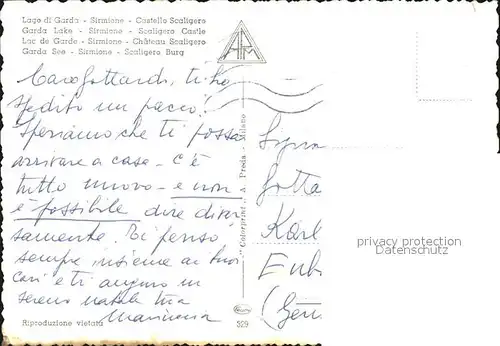 Lago di Garda - Sirmione - Castello Scaligero
Garda Lake - Sirmione - Scaligero Castle
Lac de Garde - Sirmione - Château Scaligero
Garda See - Sirmione - Scaligero Burg
Caro Gottardo, ti ho
spedito un pacco!
Speriamo che ti possa
arrivare a casa - c'è
tutto nuovo - e non
è possibile dire diver
samente. Ti penso
sempre insieme ai tuoi
cari e ti auguro un
sereno natale tua
Riproduzione vietata
529
"Colorprint", A. Preda - Milano
Signo
Gotta
Karl
(Ger
privacy protection
Datenschutz